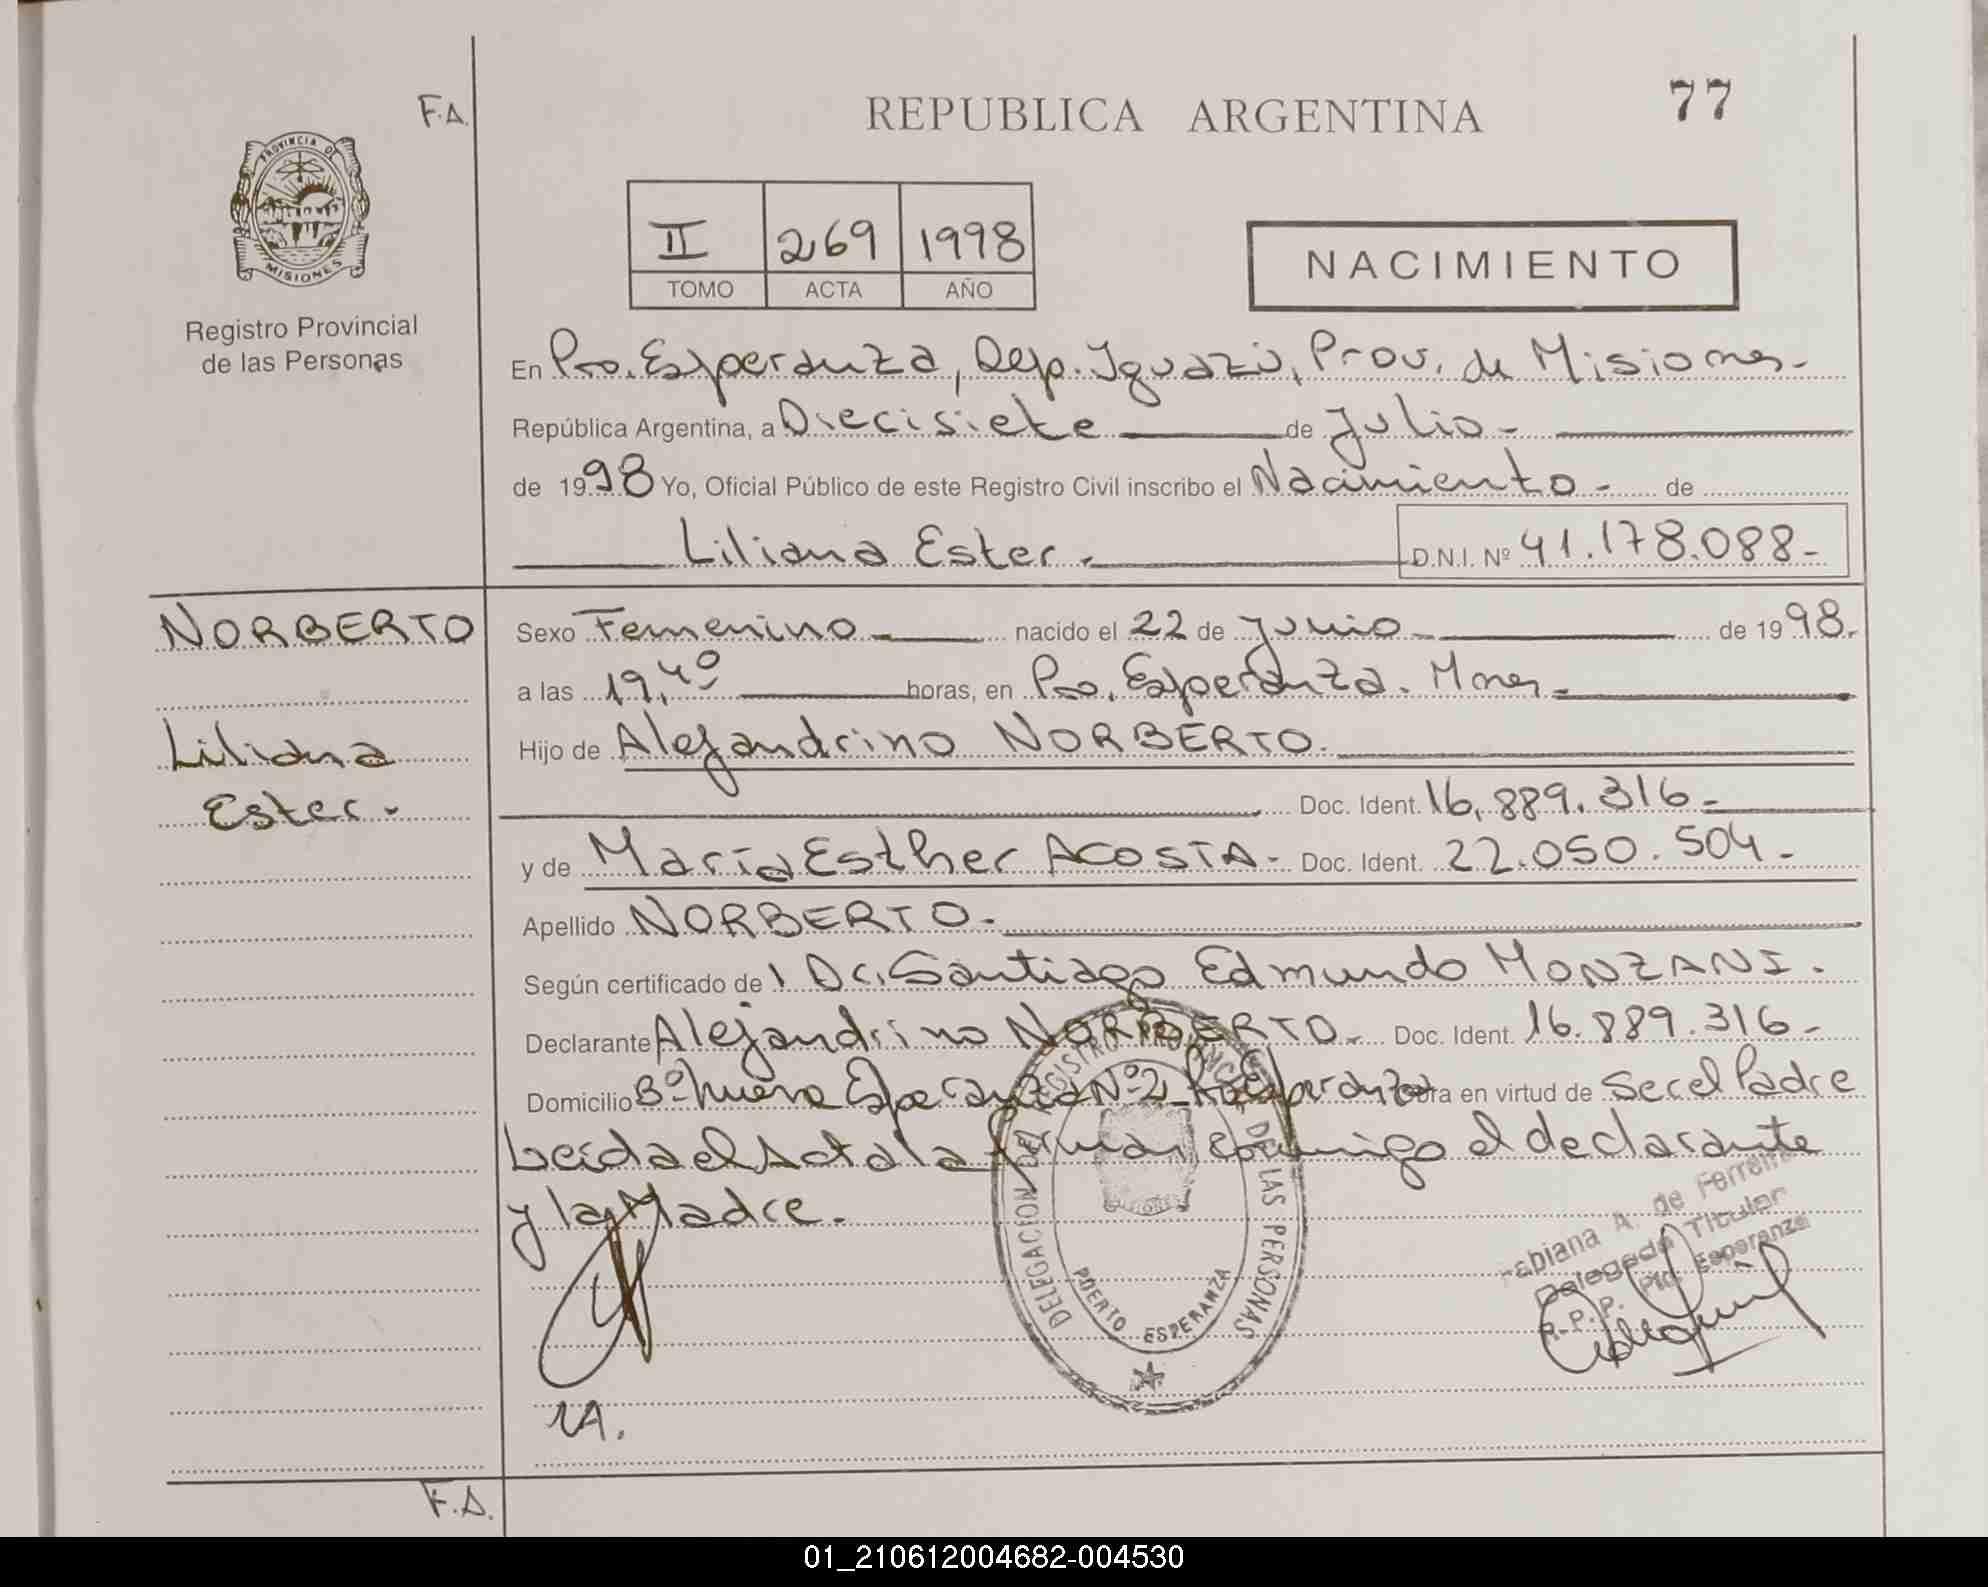 F.A.
REPUBLICA ARGENTINA
77
PROVINCIA DE
MISIONES
Registro Provincial
de las Personas
II 269 1998
TOMO ACTA AÑO
NACIMIENTO
En Pto. Esperanza, Dep. Iguazú, Prov. de Misiones-
República Argentina, a Diecisiete de Julio-
de 1998 Yo, Oficial Público de este Registro Civil inscribo el Nacimiento- de
Liliana Ester- D.N.I. Nº 41.178.088-
NORBERTO
Liliana
Ester-
Sexo Femenino nacido el 22 de Junio de 1998.
a las 19,40 horas, en Pto. Esperanza. Mnes-
Hijo de Alejandrino NORBERTO.
Doc. Ident. 16.889.316-
y de María Esther ACOSTA- Doc. Ident. 22.050.504-
Apellido NORBERTO-
Según certificado de Dr. Santiago Edmundo MONZANI.
Declarante Alejandrino NORBERTO- Doc. Ident. 16.889.316-
Domicilio Bº Nueva Esperanza Nº2_ Pto Esperanza obra en virtud de Ser el Padre
Leída el Acta la firman conmigo el declarante
y la Madre.
DELEGACION DEL REGISTRO PROVINCIAL DE LAS PERSONAS
PUERTO ESPERANZA
Fabiana A. de Ferreira
Delegada Titular
R.P.P. Pto. Esperanza
F.A.
01_210612004682-004530